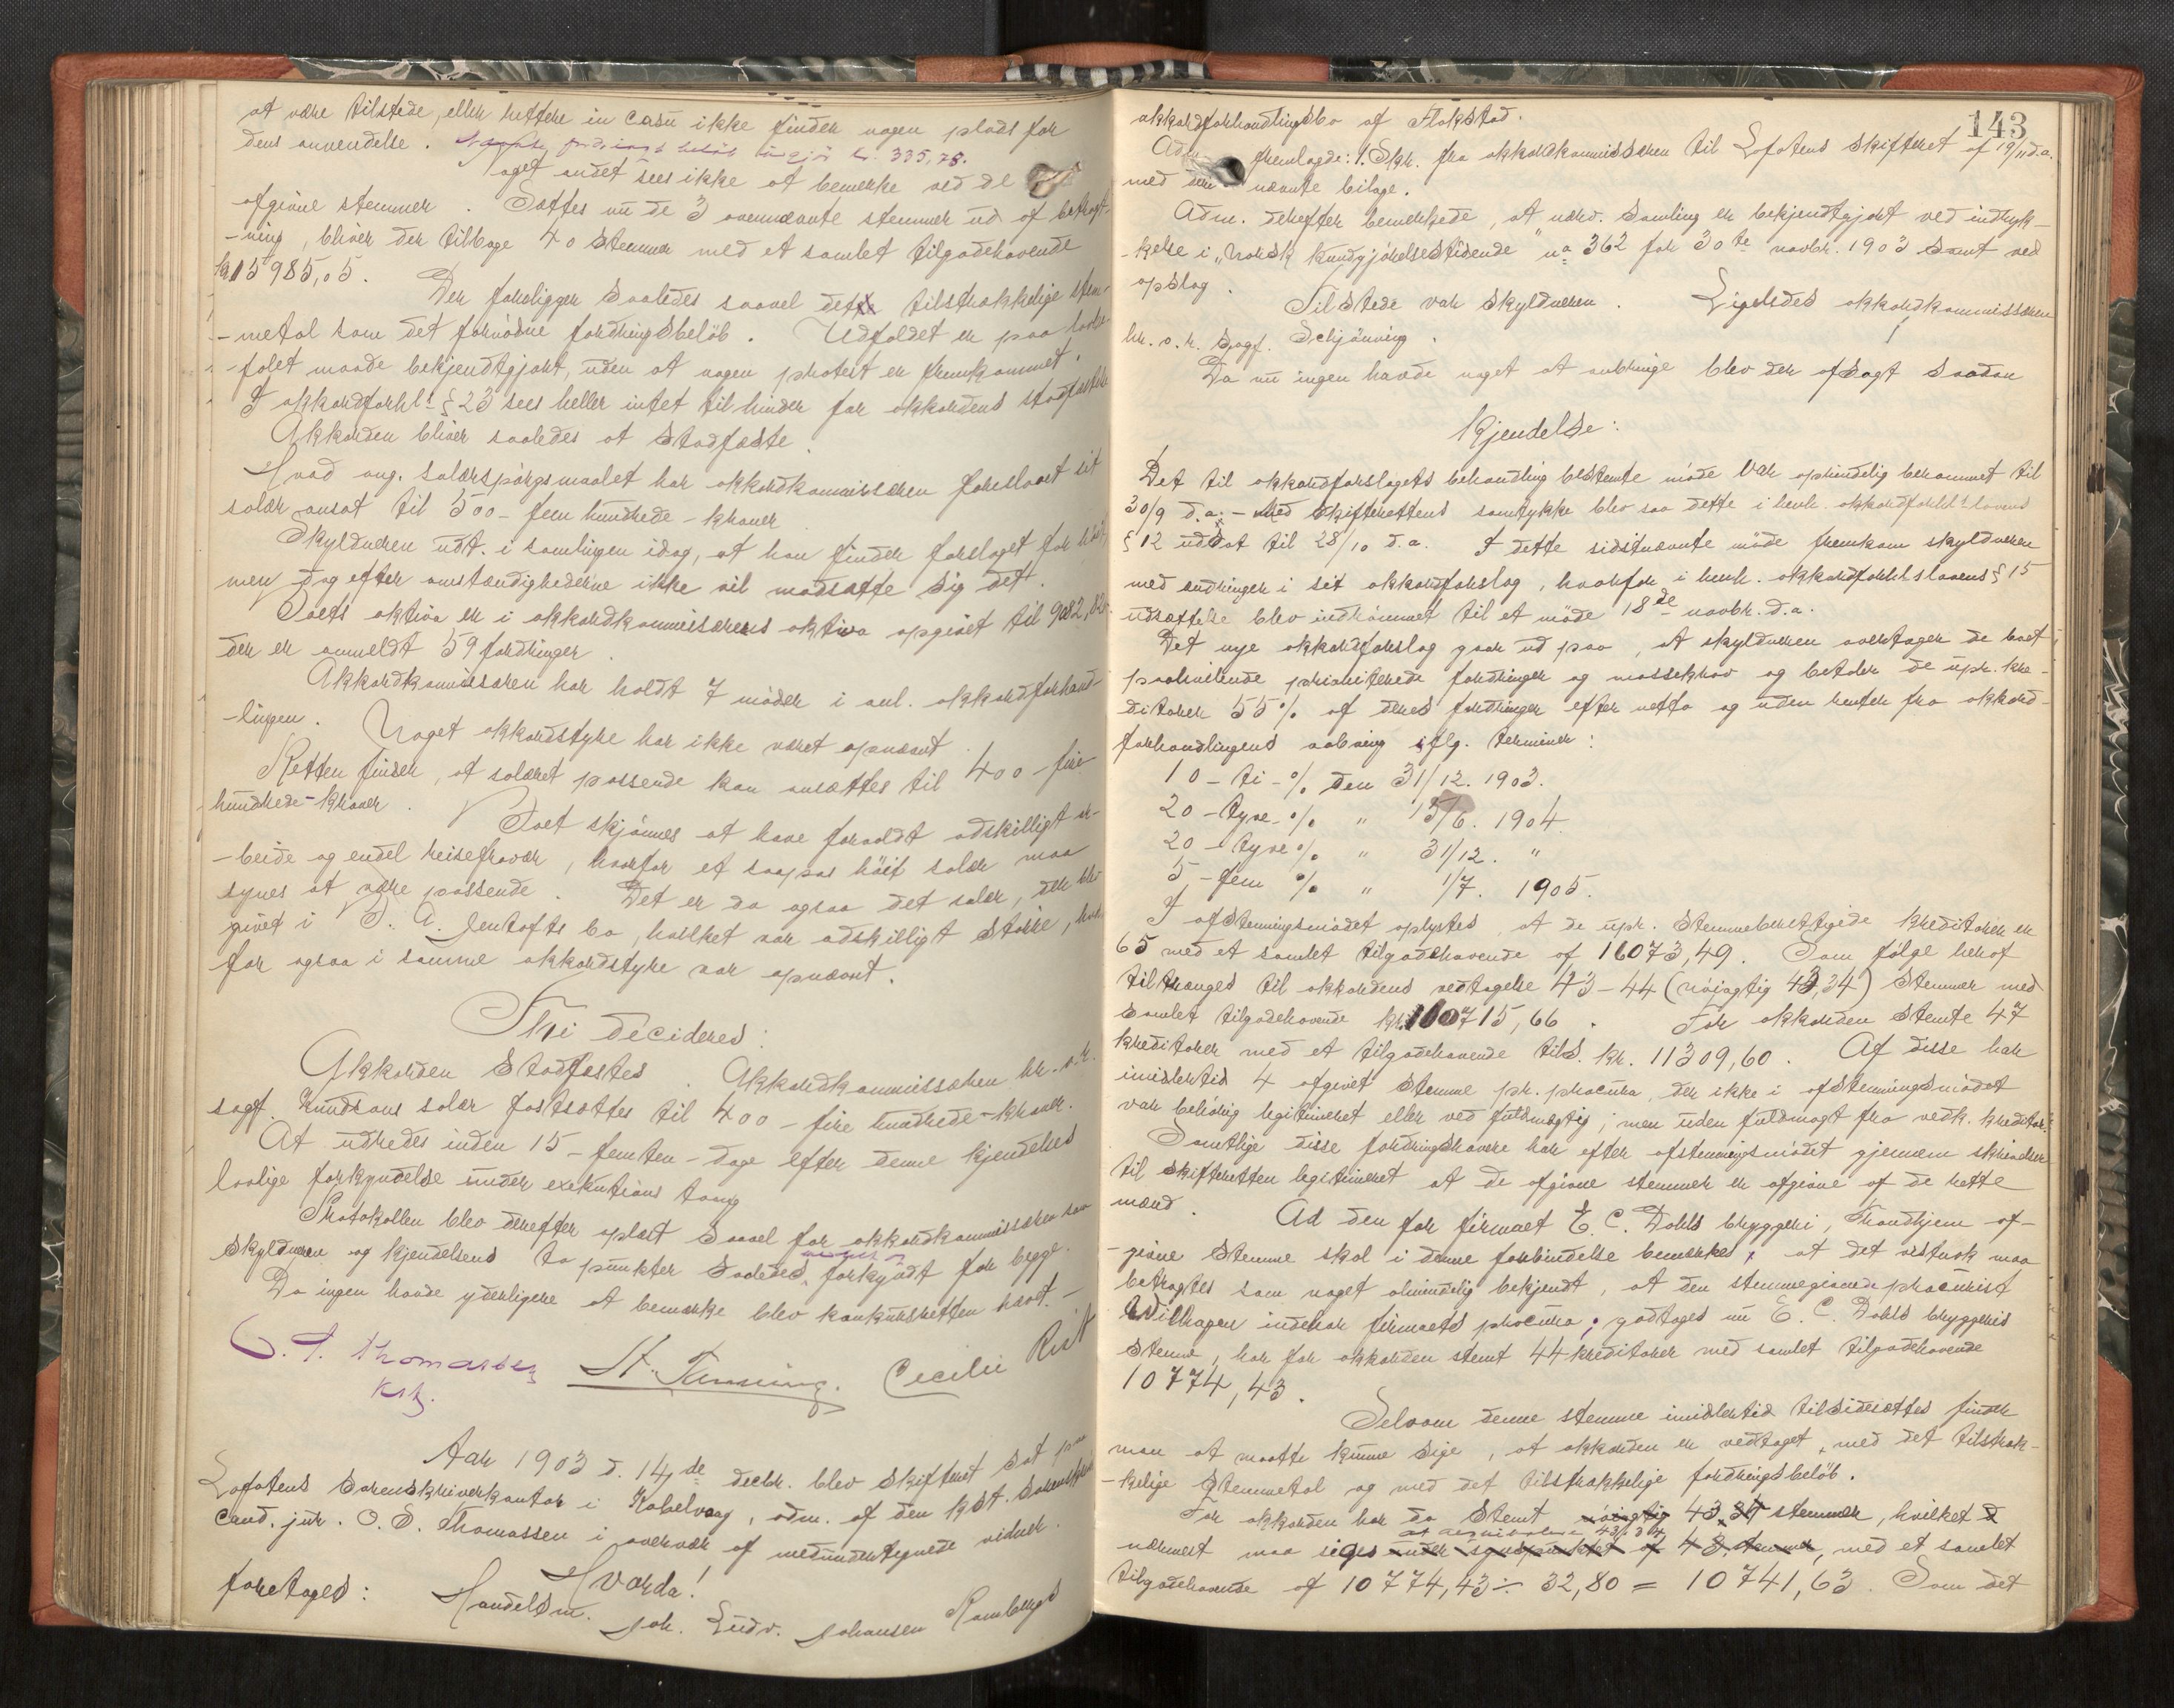 at være tilstede, eller rettere in casu ikke finder nogen plads for
dens anvendelse. beløb kr. 335,78.
Noget andet sees ikke at bemerke ved de
afgivne stemmer. Sættes nu de 3 ovennævnte stemmer ud af betragt-
-ning, bliver der tilbage 40 stemmer med et samlet tilgodehavende
kr 15985,05. Der foreligger saaledes saavel det tilstrækkelige stem-
-metal som det fornødne fordringsbeløb. Udfaldet er paa lovbe-
-falet maade bekjendtgjort, uden at nogen protest er fremkommet.
I akkordforhl. § 23 sees heller intet til hinder for akkordens stadfæstelse
Akkorden bliver saaledes at stadfæste.
Hvad ang. salærspørgsmaalet har akkordkommissæren foreslaaet sit
salær ansat til 500 - fem hundrede - kroner
Skyldneren udt. i samlingen idag, at han finder forslaget for
men dog efter omstændighederne ikke vil modsætte sig det.
Boets aktiva er i akkordkommissærens aktiva opgivet til 9082,82
der er anmeldt 59 fordringer.
Akkordkommissæren har holdt 7 møder i anl. akkordforhand-
-lingen. Noget akkordstyre har ikke været opnævnt.
Retten finder, at salæret passende kan ansættes til 400 - fire
hundrede - kroner. Boet skjønnes at have forvoldt adskilligt ar-
-beide og endel reisefravær, hvorfor et saapas høit salær maa
synes at være passende. Det er da ogsaa det salær, der blev
givet i P. A. Jentofts bo, hvilket var adskilligt større,
for ogsaa i samme akkordstyre var opnævnt.
Thi decideres:
Akkorden stadfæstes. Akkordkommissæren hr. o.r.
sagf. Knudsens salær fastsættes til 400 - fire hundrede - kroner.
At udredes inden 15 - femten - dage efter denne kjendelses
lovlige forkyndelse under exekutions tvang
Protokollen blev derefter oplæst saavel for akkordkommissæren som
skyldneren og kjendelsens to punkter saaledes forkyndt for begge.
Da ingen havde yderligere at bemærke blev konkursretten hævet. -
O. S. Thomassen St. Tenning. Cecilie Rist
kst.
Aar 1903 d. 14de decbr. blev skifteret sat paa
Lofotens sorenskriverkontor i Kabelvaag, adm. af den kst. sorenskriver
cand. jur. O. S. Thomassen i overvær af medundertegnede vidner.
Hvorda!
foretages: Handelsm. Joh. Ludv. Johansen Rambergs
143
akkordforhandlingsbo af Flakstad.
Adm. fremlagde: 1. Skr. fra akkordkommissæren til Lofotens skifteret af 19/11 d.a.
med den nævnte bilage.
Adm. derefter bemerkede, at nærv. samling er bekjendtgjort ved indryk-
-kelse i „Norsk Kundgjørelsestidende" no 362 for 30te novbr. 1903 samt ved
opslag. Tilstede var skyldneren. Ligeledes akkordkommissæren
hr. o. r. sagf. Schjønning.
Da nu ingen havde noget at anbringe blev der afsagt saadan
Kjendelse:
Det til akkordforslagets behandling bestemte møde var oprindelig berammet til
30/9 d.a. - Med skifterettens samtykke blev saa dette i henh. akkordforhl. lovens
§ 12 udsat til 28/10 d.a. I dette sidstnævnte møde fremkom skyldneren
med endringer i sit akkordforslag, hvorfor i henh. akkordforhl slovens § 15
udsættelse blev indrømmet til et møde 18de novbr. d.a.
Det nye akkordforslag gaar ud paa, at skyldneren overtager de boet
paahvilende prioriterede fordringer og massekrav og betaler de upr. kre-
ditorer 55% af deres fordringer efter netto og uden renter fra akkord-
forhandlingens aabning iflg. terminer:
10 - ti - % den 31/12. 1903.
20 - tyve - % " 15/6. 1904.
20 - tyve % " 31/12. "
5 - fem % " 1/7. 1905.
I afstemningsmødet oplystes, at de upr. stemmeberettigede kreditorer er
65 med et samlet tilgodehavende af 16073,49. Som følge heraf
tiltrænges til akkordens vedtagelse 43 - 44 (nøiagtig 43,34) stemmer med
samlet tilgodehavende kr. 10715,66. For akkorden stemte 47
kreditorer med et tilgodehavende tils. kr. 11309,60. Af disse har
imidlertid 4 afgivet stemme pr. procura, der ikke i afstemningsmødet
var behørig legitimeret eller ved fuldmægtig, men uden fuldmagt fra vedk. kreditor.
Samtlige disse fordringshavere har efter afstemningsmødet gjennem skrivelser
til skifteretten legitimeret at de afgivne stemmer er afgivne af de rette
mænd. Ad den for firmaet E. C. Dahls bryggeri, Trondhjem af-
-givne stemme skal i denne forbindelse bemærkes, at det vistnok maa
betragtes som noget almindelig bekjendt, at den stemmegivende procurist
Wilhagen indehar firmaets procura; godtages nu E. C. Dahls bryggeris
stemme, har for akkorden stemt 44 kreditorer med samlet tilgodehavende
10774,43.
Selvom denne stemme imidlertid tilsidesættes finder
man at maatte kunne sige, at akkorden er vedtaget, med det tilstræk-
-kelige stemmetal og med det tilstrækkelige fordringsbeløb.
For akkorden har da stemt nøiagtig 43,34 stemmer, hvilket
nærmest maa siges under synspunktet af 43 stemmer, med et samlet
tilgodehavende af 10774,43 ÷ 32,80 = 10741,63. Som det